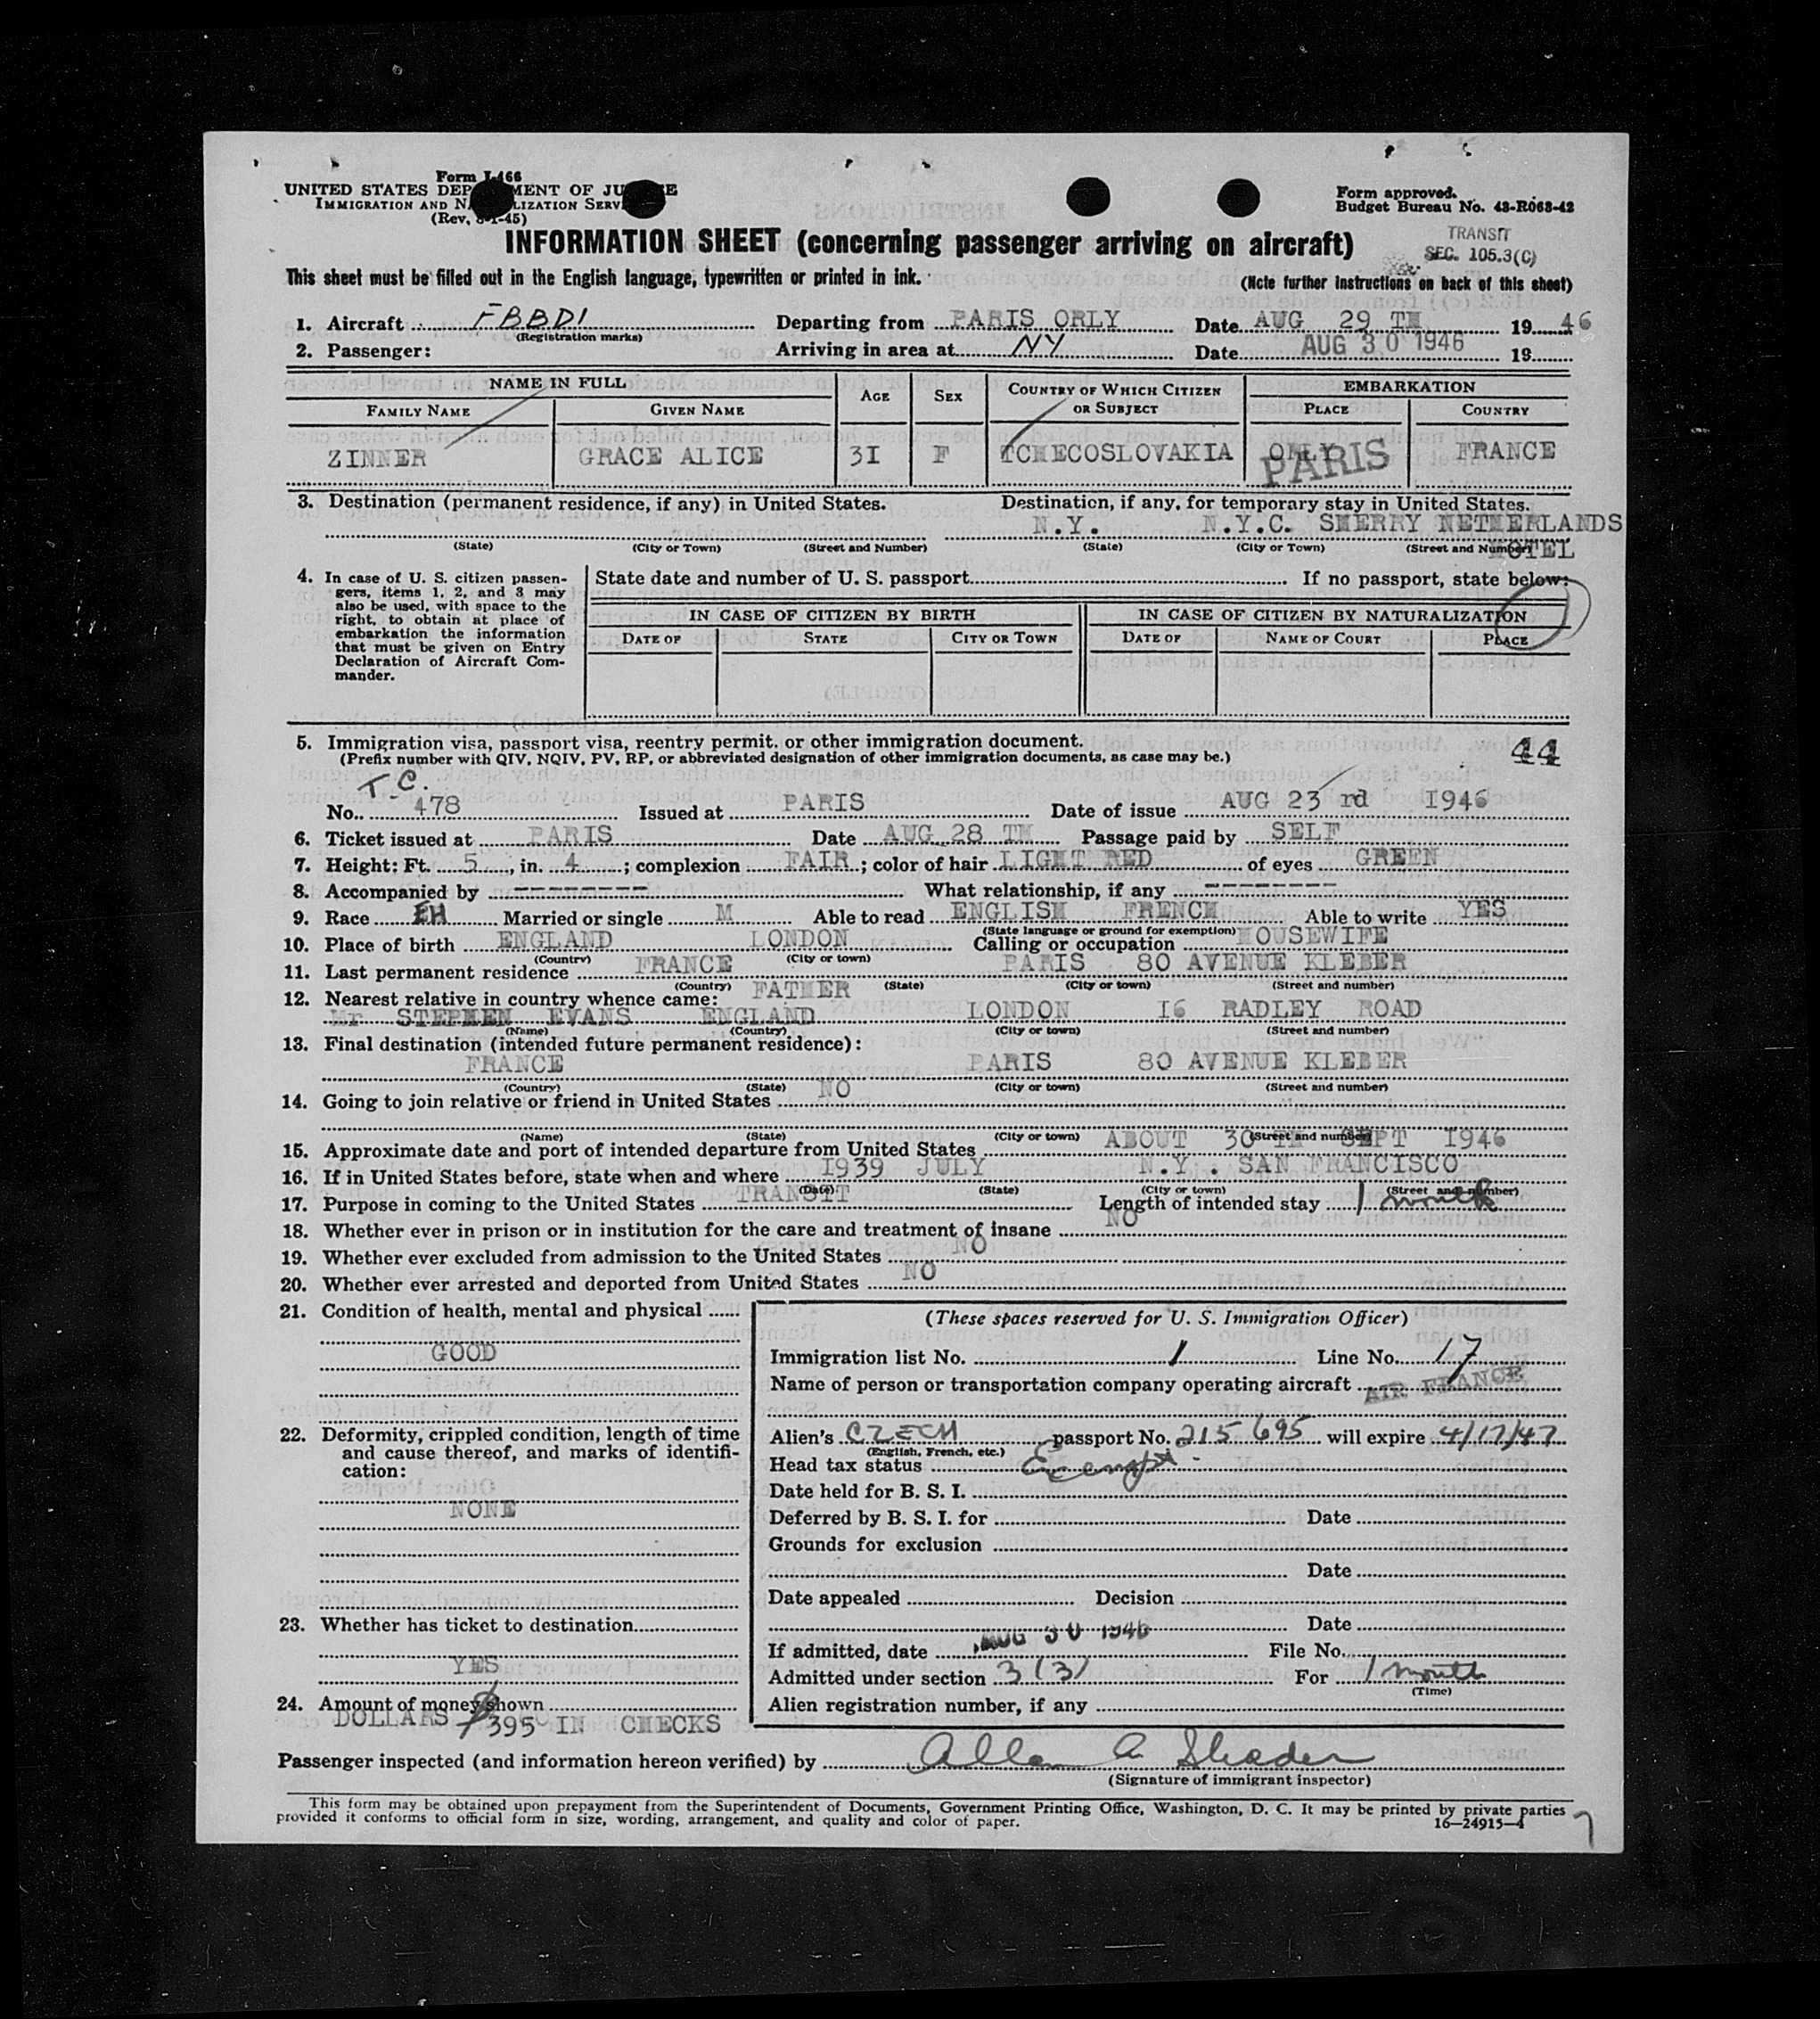 Form I-466
UNITED STATES DEPARTMENT OF JUSTICE
IMMIGRATION AND NATURALIZATION SERVICE
(Rev. 8-1-45)
Form approved.
Budget Bureau No. 43-R063-42
INFORMATION SHEET (concerning passenger arriving on aircraft)
TRANSIT
SEC. 105.3(C)
This sheet must be filled out in the English language, typewritten or printed in ink.
(Note further instructions on back of this sheet)
1. Aircraft FBBDI Departing from PARIS ORLY Date AUG 29 TH 1946
(Registration marks)
2. Passenger: Arriving in area at NY Date AUG 30 1946 19
NAME IN FULL AGE SEX COUNTRY OF WHICH CITIZEN OR SUBJECT EMBARKATION
FAMILY NAME GIVEN NAME PLACE COUNTRY
ZINNER GRACE ALICE 3I F TCHECOSLOVAKIA ORLY PARIS FRANCE
3. Destination (permanent residence, if any) in United States. Destination, if any, for temporary stay in United States.
N.Y. N.Y.C. SHERRY NETHERLANDS
(State) (City or Town) (Street and Number) (State) (City or Town) (Street and Number) HOTEL
4. In case of U. S. citizen passengers, items 1, 2, and 3 may also be used, with space to the right, to obtain at place of embarkation the information that must be given on Entry Declaration of Aircraft Commander.
State date and number of U. S. passport If no passport, state below:
IN CASE OF CITIZEN BY BIRTH IN CASE OF CITIZEN BY NATURALIZATION
DATE OF STATE CITY OR TOWN DATE OF NAME OF COURT PLACE
5. Immigration visa, passport visa, reentry permit. or other immigration document.
(Prefix number with QIV, NQIV, PV, RP, or abbreviated designation of other immigration documents, as case may be.)
44
T.C.
No. 478 Issued at PARIS Date of issue AUG 23 rd I946
6. Ticket issued at PARIS Date AUG 28 TH Passage paid by SELF
7. Height: Ft. 5, in. 4; complexion FAIR; color of hair LIGHT RED of eyes GREEN
8. Accompanied by --------- What relationship, if any ---------
9. Race EH Married or single M Able to read ENGLISH FRENCH Able to write YES
(State language or ground for exemption)
10. Place of birth ENGLAND LONDON Calling or occupation HOUSEWIFE
(Country) (City or town)
11. Last permanent residence FRANCE PARIS 80 AVENUE KLEBER
(Country) (State) (City or town) (Street and number)
12. Nearest relative in country whence came: FATHER
Mr STEPHEN EVANS ENGLAND LONDON I6 RADLEY ROAD
(Name) (Country) (City or town) (Street and number)
13. Final destination (intended future permanent residence):
FRANCE PARIS 80 AVENUE KLEBER
(Country) (State) (City or town) (Street and number)
14. Going to join relative or friend in United States NO
(Name) (State) (City or town) (Street and number)
15. Approximate date and port of intended departure from United States ABOUT 30 TH SEPT I946
16. If in United States before, state when and where I939 JULY N.Y. SAN FRANCISCO
(Date) (State) (City or town) (Street and number)
17. Purpose in coming to the United States TRANSIT Length of intended stay 1 month
18. Whether ever in prison or in institution for the care and treatment of insane NO
19. Whether ever excluded from admission to the United States NO
20. Whether ever arrested and deported from United States NO
21. Condition of health, mental and physical
GOOD
22. Deformity, crippled condition, length of time and cause thereof, and marks of identification:
NONE
23. Whether has ticket to destination
YES
24. Amount of money shown
DOLLARS $395 IN CHECKS
(These spaces reserved for U. S. Immigration Officer)
Immigration list No. 1 Line No. 17
Name of person or transportation company operating aircraft AIR FRANCE
Alien's CZECH passport No. 215695 will expire 4/17/47
(English, French, etc.)
Head tax status Exempt
Date held for B. S. I.
Deferred by B. S. I. for Date
Grounds for exclusion
Date
Date appealed Decision
Date
If admitted, date AUG 30 1946 File No.
Admitted under section 3(3) For 1 month
(Time)
Alien registration number, if any
Passenger inspected (and information hereon verified) by Allen A Shader
(Signature of immigrant inspector)
This form may be obtained upon prepayment from the Superintendent of Documents, Government Printing Office, Washington, D. C. It may be printed by private parties
provided it conforms to official form in size, wording, arrangement, and quality and color of paper. 16—24915-4